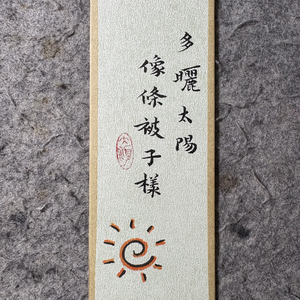 多曬太陽
像條被子樣